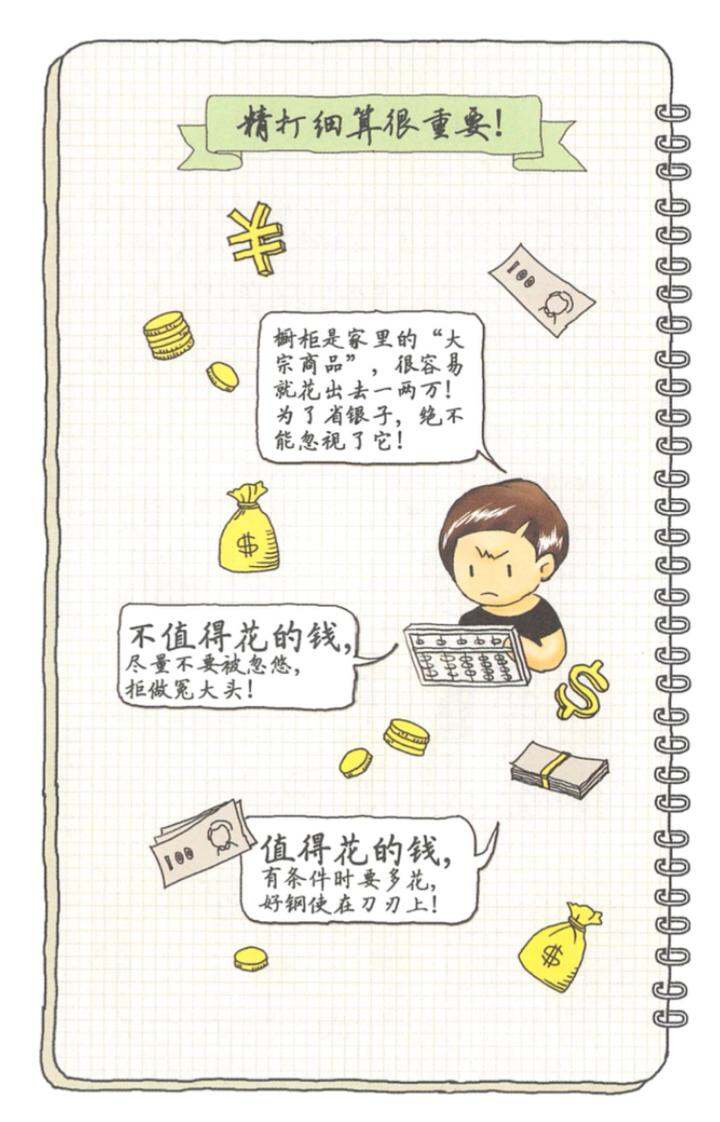 精打细算很重要!
¥
100
橱柜是家里的“大
宗商品”，很容易
就花出去一两万!
为了省银子，绝不
能忽视了它!
$
不值得花的钱，
尽量不要被忽悠，
拒做冤大头!
$
100
值得花的钱，
有条件时要多花，
好钢使在刀刃上!
$